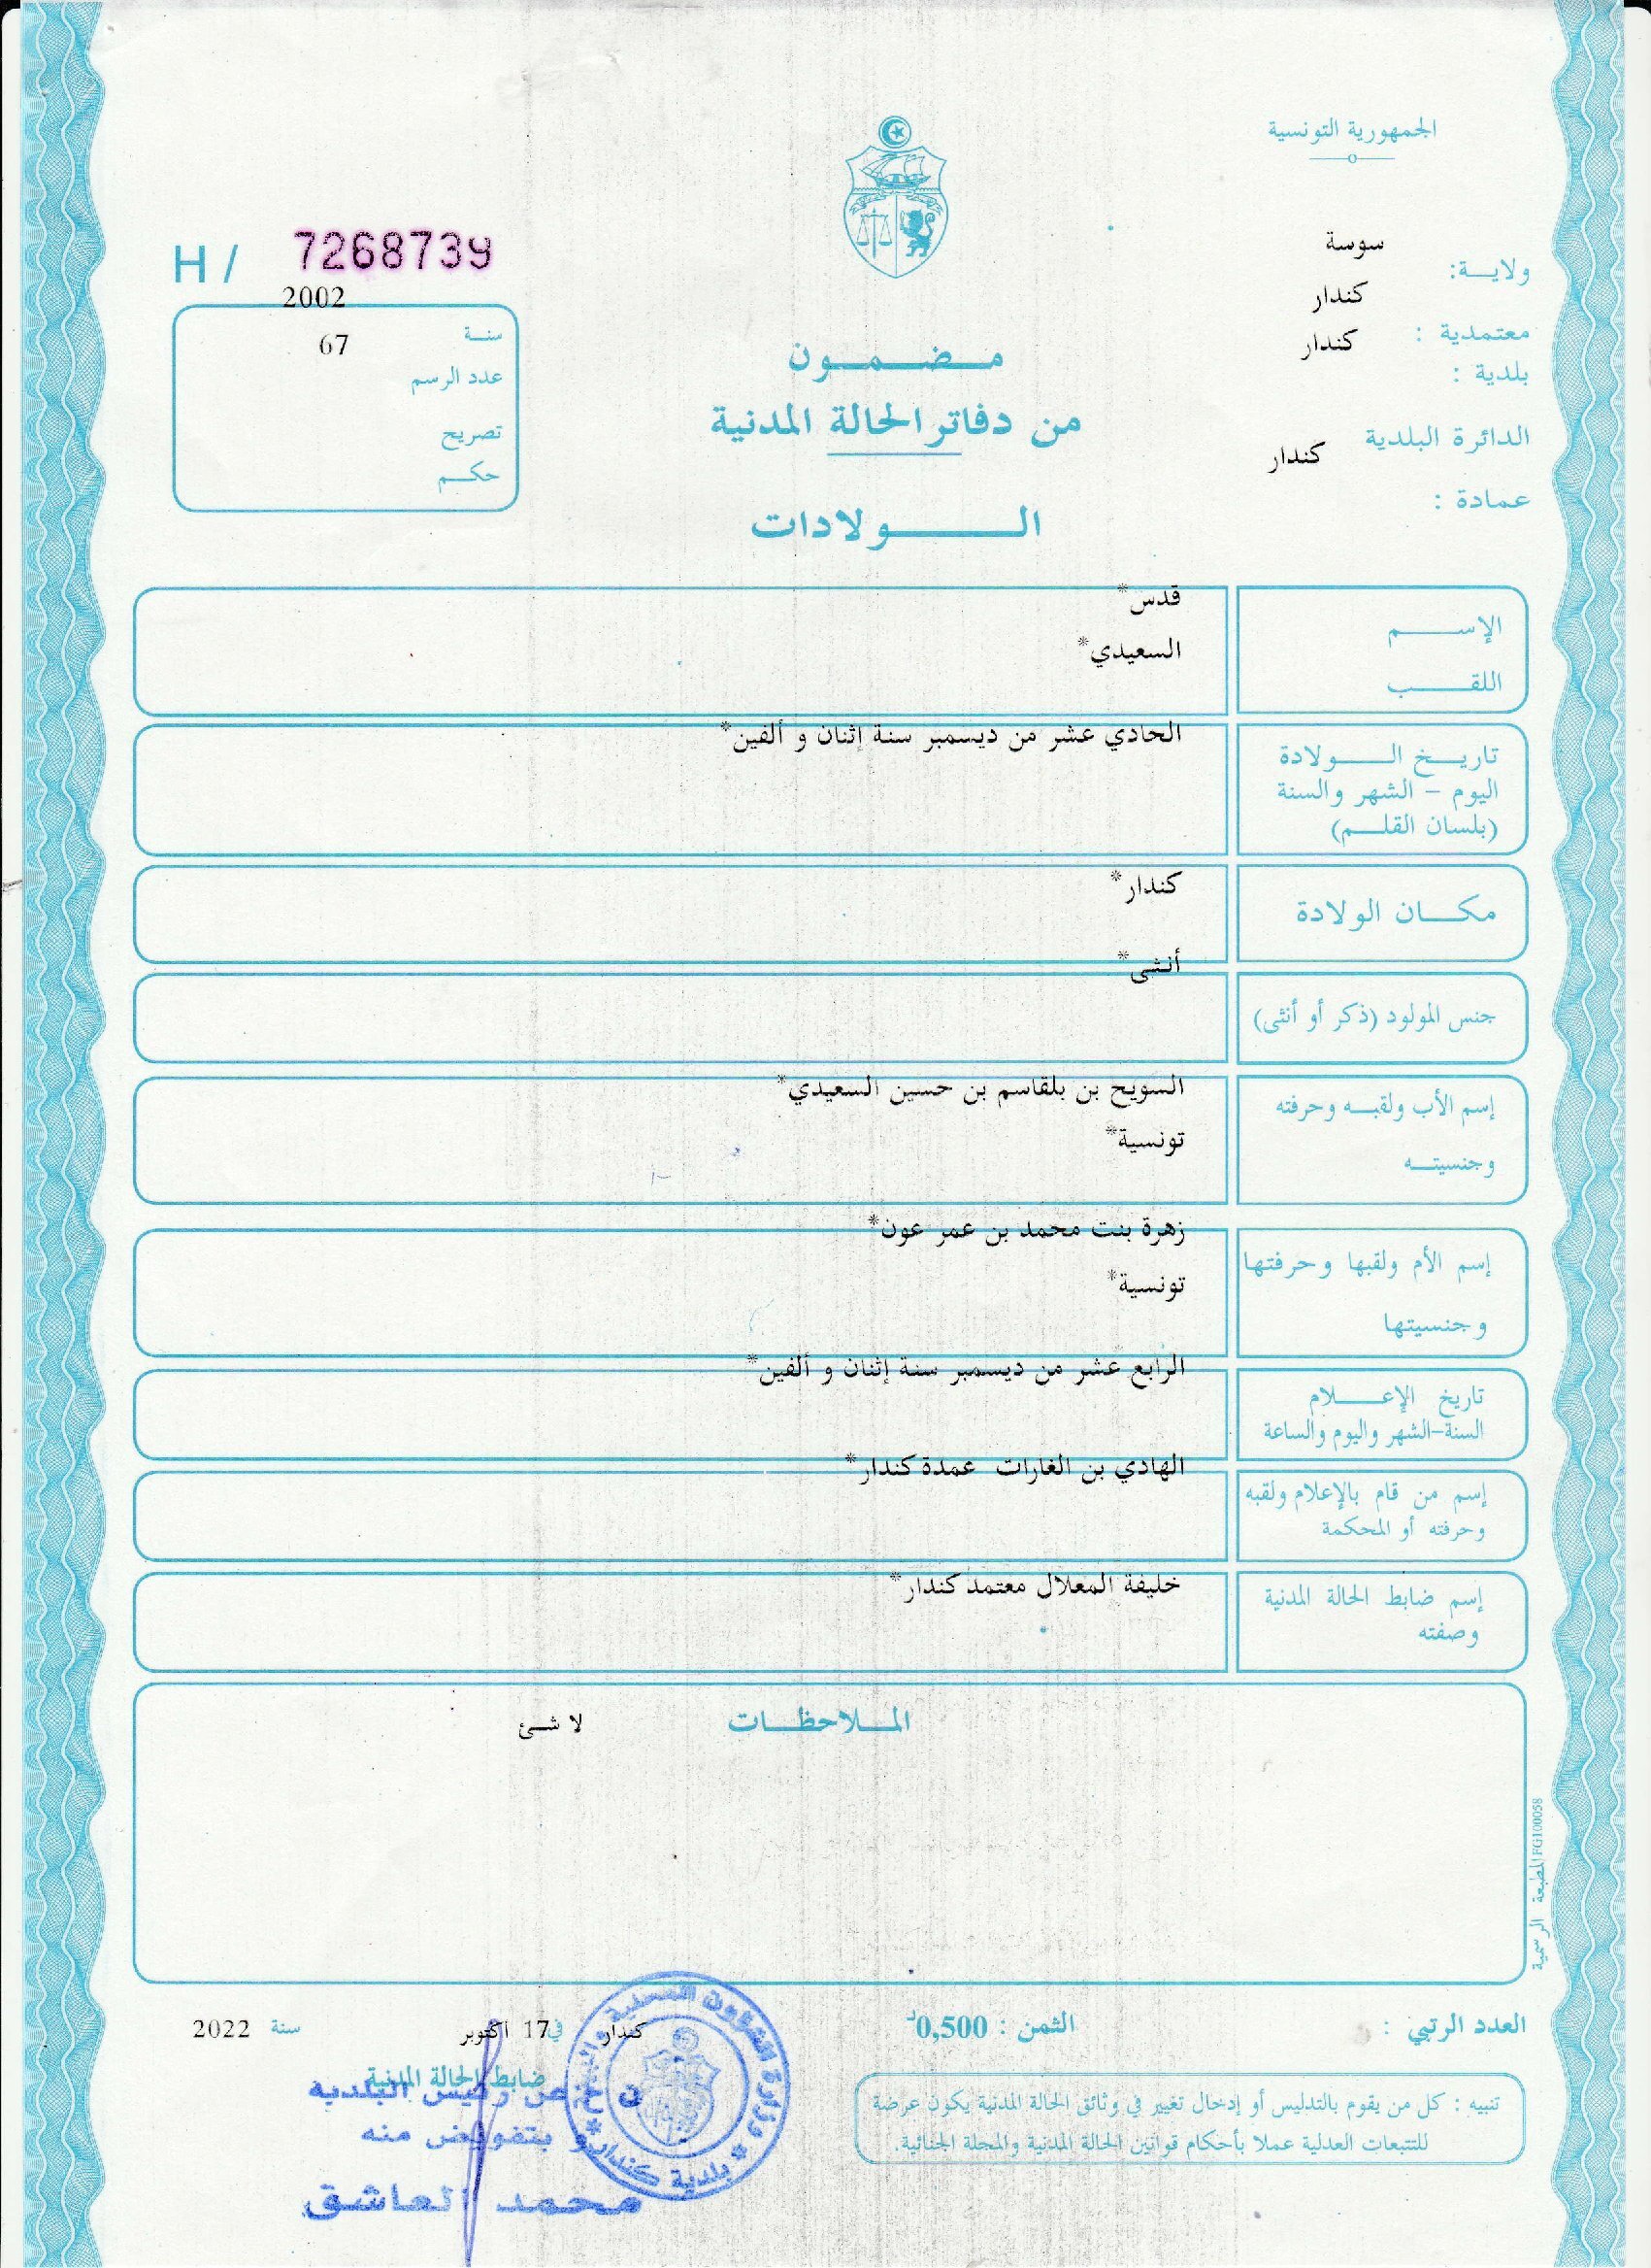 الجمهورية التونسية
ولايــة: سوسة
معتمدية : كندار
بلدية : كندار
الدائرة البلدية كندار
عمادة :
H / 7268739
سنـة 2002
عدد الرسم 67
تصريح
حكـم
مـضـمـون
من دفاتر الحالة المدنية
الـولادات
الإسـم قدس*
اللقـب السعيدي*
تاريـخ الـولادة
اليوم - الشهر والسنة
(بلسان القلـم)
الحادي عشر من ديسمبر سنة إثنان و ألفين*
مكـان الولادة كندار*
جنس المولود (ذكر أو أنثى) أنثى*
إسم الأب ولقبـه وحرفته السويح بن بلقاسم بن حسين السعيدي*
وجنسيتـه تونسية*
إسم الأم ولقبها وحرفتها زهرة بنت محمد بن عمر عون*
وجنسيتها تونسية*
تاريخ الإعـلام
السنة-الشهر واليوم والساعة
الرابع عشر من ديسمبر سنة إثنان و ألفين*
إسم من قام بالإعلام ولقبه
وحرفته أو المحكمة
الهادي بن الغارات عمدة كندار*
إسم ضابط الحالة المدنية
وصفته
خليفة المعلال معتمد كندار*
المـلاحظـات
لا شئ
المطبعة الرسمية FG100058
العدد الرتبي :
الثمن : 0,500د
كندار في 17 اكتوبر سنة 2022
ضابط الحالة المدنية
عن رئيس البلدية
و بتفويض منه
محمد العاشق
بلدية كندار
تنبيه : كل من يقوم بالتدليس أو إدخال تغيير في وثائق الحالة المدنية يكون عرضة
للتتبعات العدلية عملا بأحكام قوانين الحالة المدنية والمجلة الجنائية.